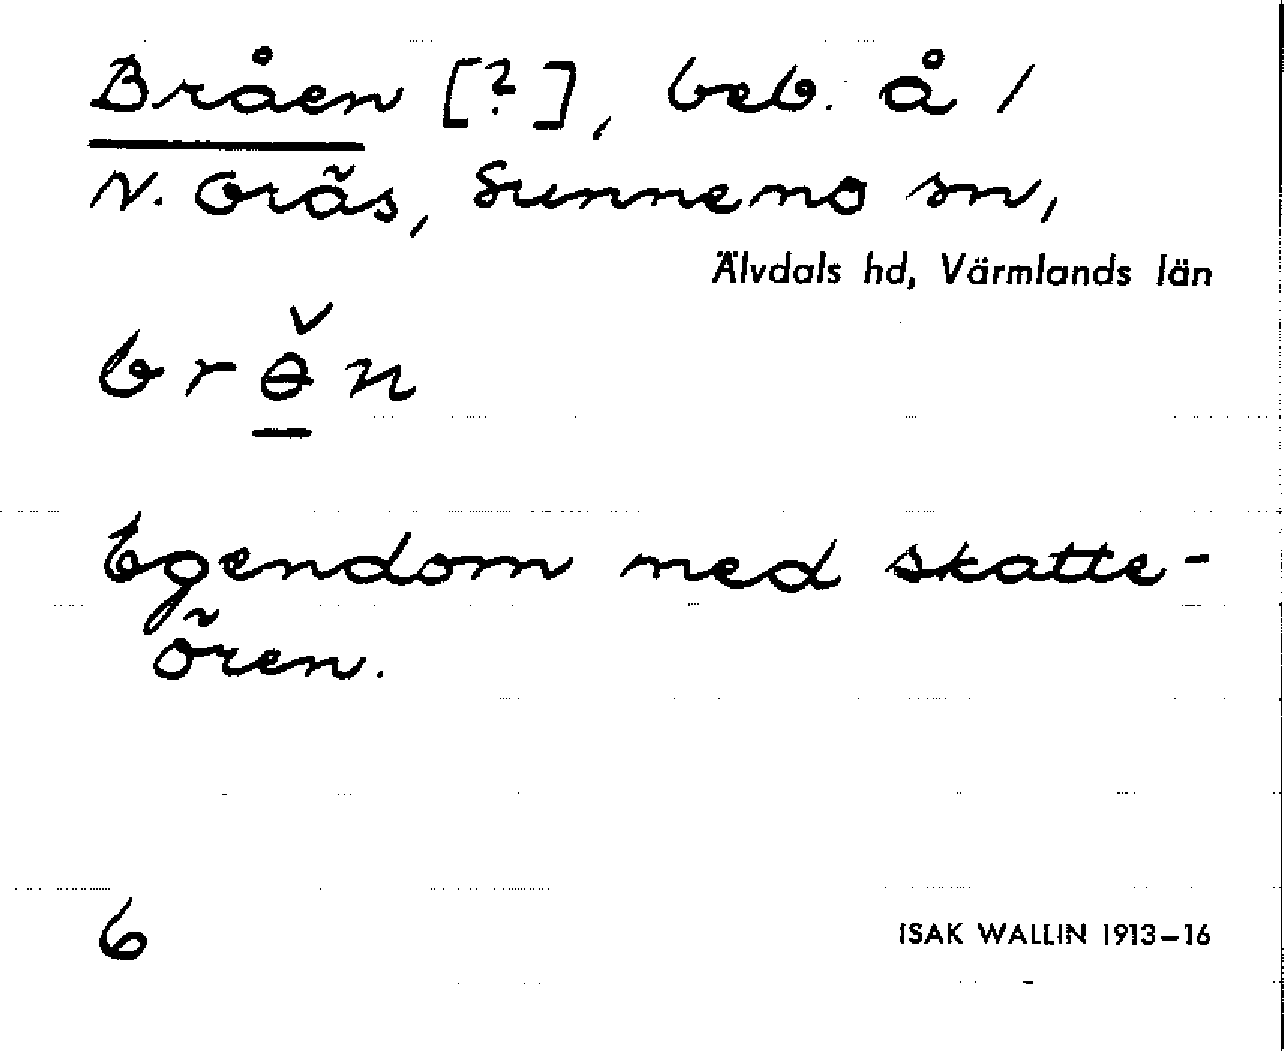 Bråen [?], beb. å /
N. Örås, Sunnemo sn,
Älvdals hd, Värmlands län
brɵ̌n
Egendom med skatte-
ören.
6
ISAK WALLIN 1913–16